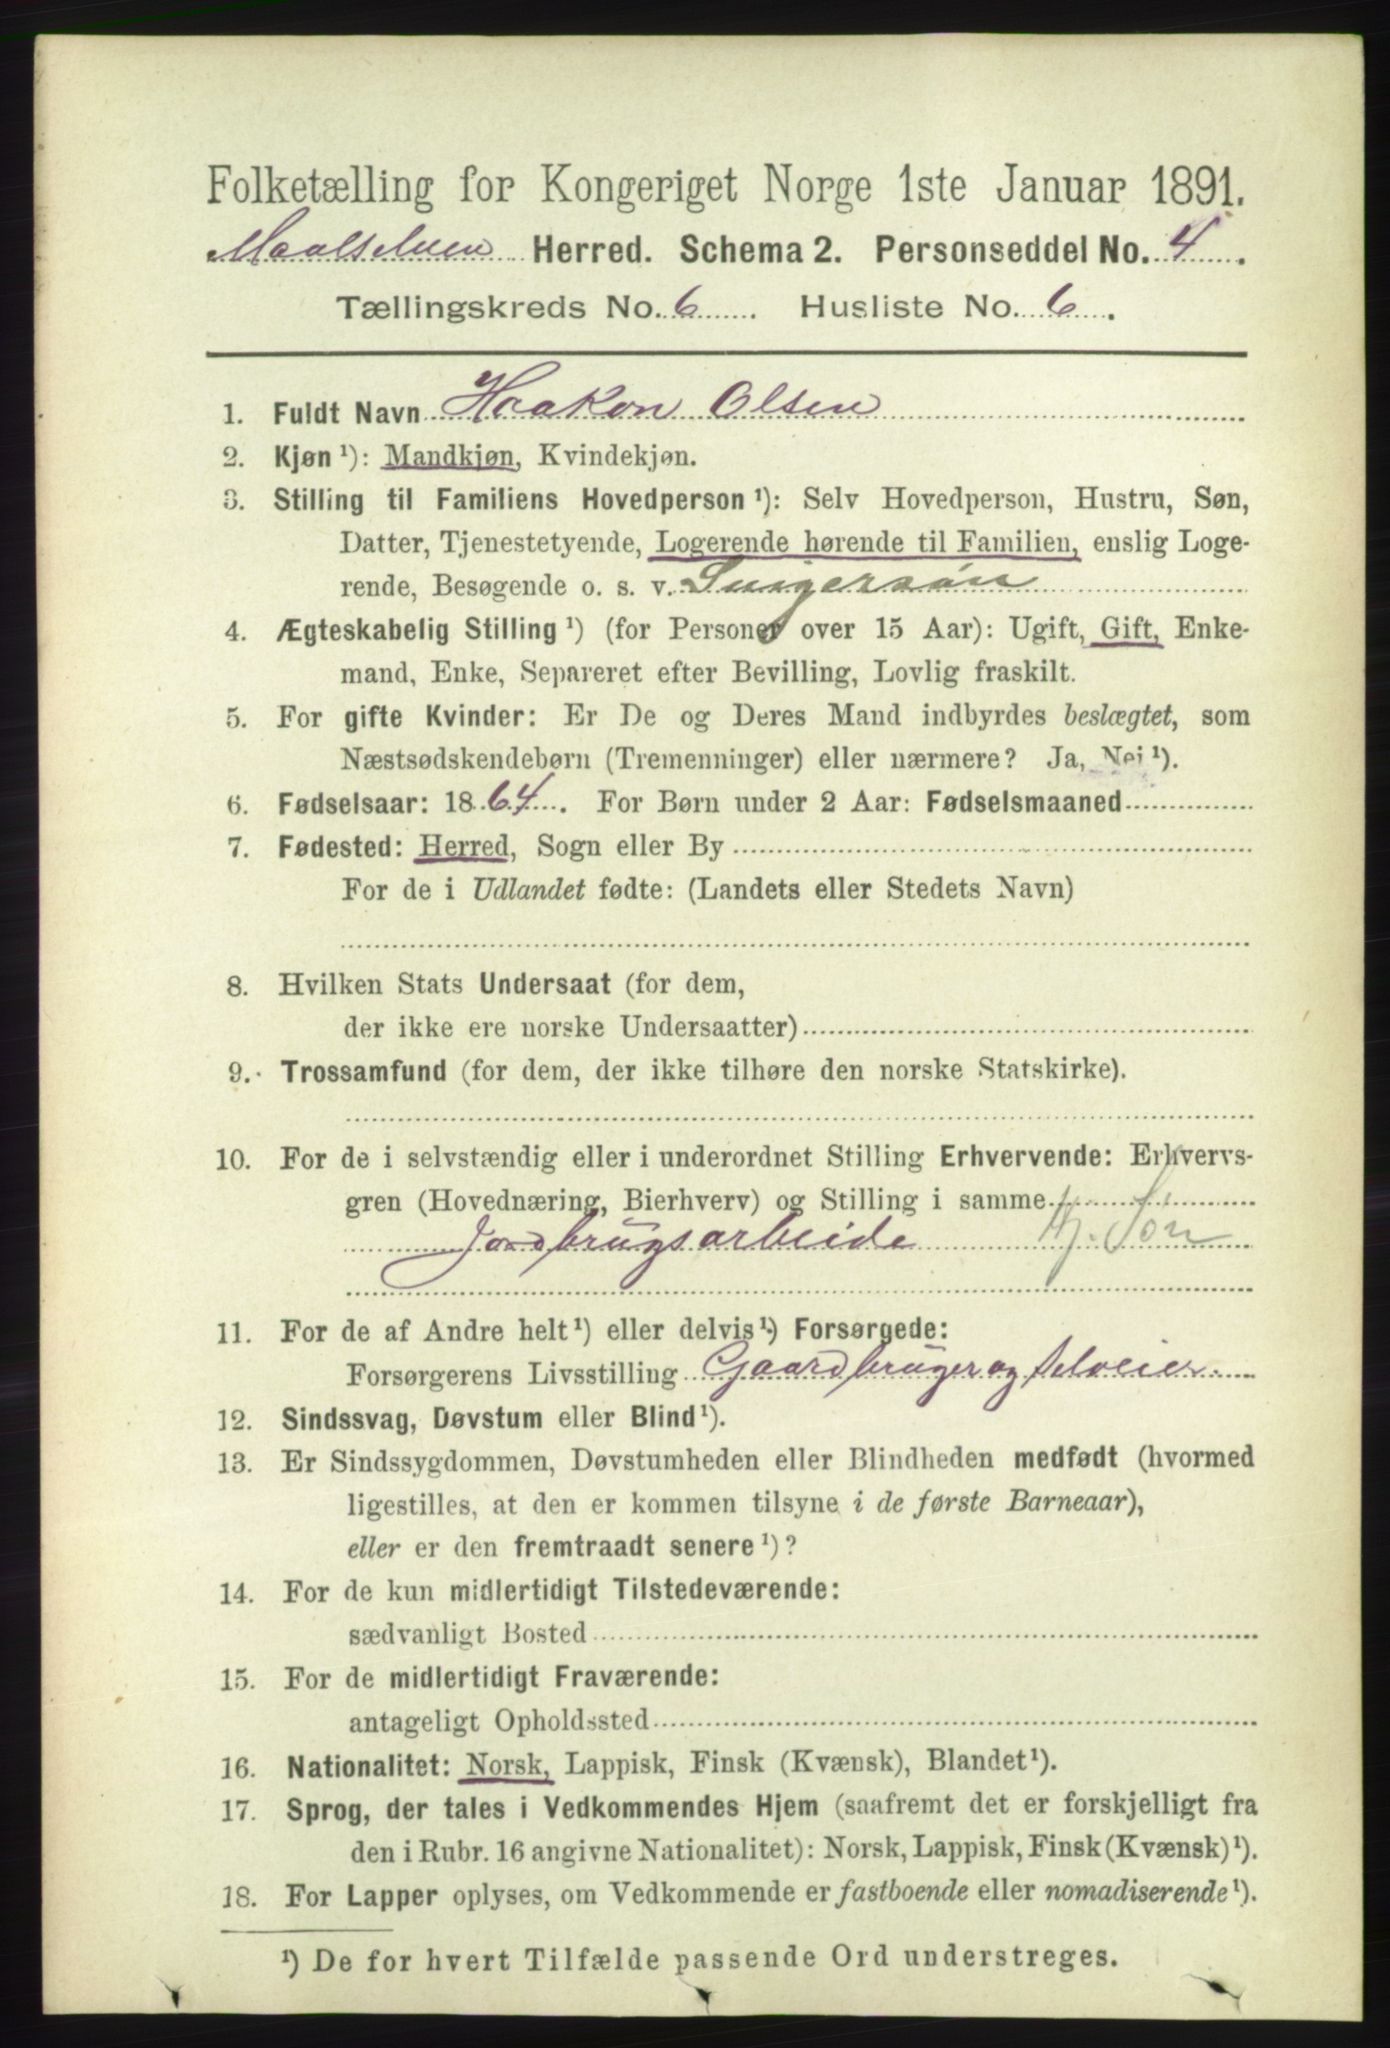 Folketælling for Kongeriget Norge 1ste Januar 1891.
Maalselven Herred. Schema 2. Personseddel No. 4.
Tællingskreds No. 6. Husliste No. 6.
1. Fuldt Navn Haakon Olsen
2. Kjøn ¹): Mandkjøn, Kvindekjøn.
3. Stilling til Familiens Hovedperson ¹): Selv Hovedperson, Hustru, Søn,
Datter, Tjenestetyende, Logerende hørende til Familien, enslig Loge-
rende, Besøgende o. s. v. Svigersøn
4. Ægteskabelig Stilling ¹) (for Personer over 15 Aar): Ugift, Gift, Enke-
mand, Enke, Separeret efter Bevilling, Lovlig fraskilt.
5. For gifte Kvinder: Er De og Deres Mand indbyrdes beslægtet, som
Næstsødskendebørn (Tremenninger) eller nærmere? Ja, Nei ¹).
6. Fødselsaar: 1864. For Børn under 2 Aar: Fødselsmaaned
7. Fødested: Herred, Sogn eller By
For de i Udlandet fødte: (Landets eller Stedets Navn)
8. Hvilken Stats Undersaat (for dem,
der ikke ere norske Undersaatter)
9. Trossamfund (for dem, der ikke tilhøre den norske Statskirke).
10. For de i selvstændig eller i underordnet Stilling Erhvervende: Erhvervs-
gren (Hovednæring, Bierhverv) og Stilling i samme
Jordbrugsarbeide Søn
11. For de af Andre helt ¹) eller delvis ¹) Forsørgede:
Forsørgerens Livsstilling Gaardbruger og selveier.
12. Sindssvag, Døvstum eller Blind ¹).
13. Er Sindssygdommen, Døvstumheden eller Blindheden medfødt (hvormed
ligestilles, at den er kommen tilsyne i de første Barneaar),
eller er den fremtraadt senere ¹)?
14. For de kun midlertidigt Tilstedeværende:
sædvanligt Bosted
15. For de midlertidigt Fraværende:
antageligt Opholdssted
16. Nationalitet: Norsk, Lappisk, Finsk (Kvænsk), Blandet ¹).
17. Sprog, der tales i Vedkommendes Hjem (saafremt det er forskjelligt fra
den i Rubr. 16 angivne Nationalitet): Norsk, Lappisk, Finsk (Kvænsk) ¹).
18. For Lapper oplyses, om Vedkommende er fastboende eller nomadiserende ¹).
¹) De for hvert Tilfælde passende Ord understreges.